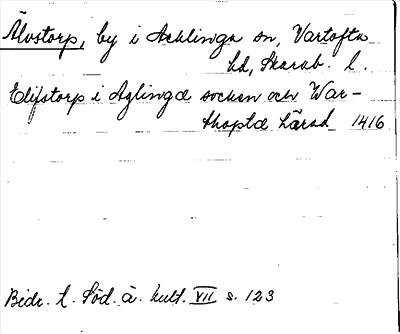 Älvstorp, by i Acklinga sn, Vartofta
hd, Skarab. l.
Elifstorp i Aglingæ socken och War-
thoptæ härad 1416
Bidr. t. Söd. å. kult. VII s. 123